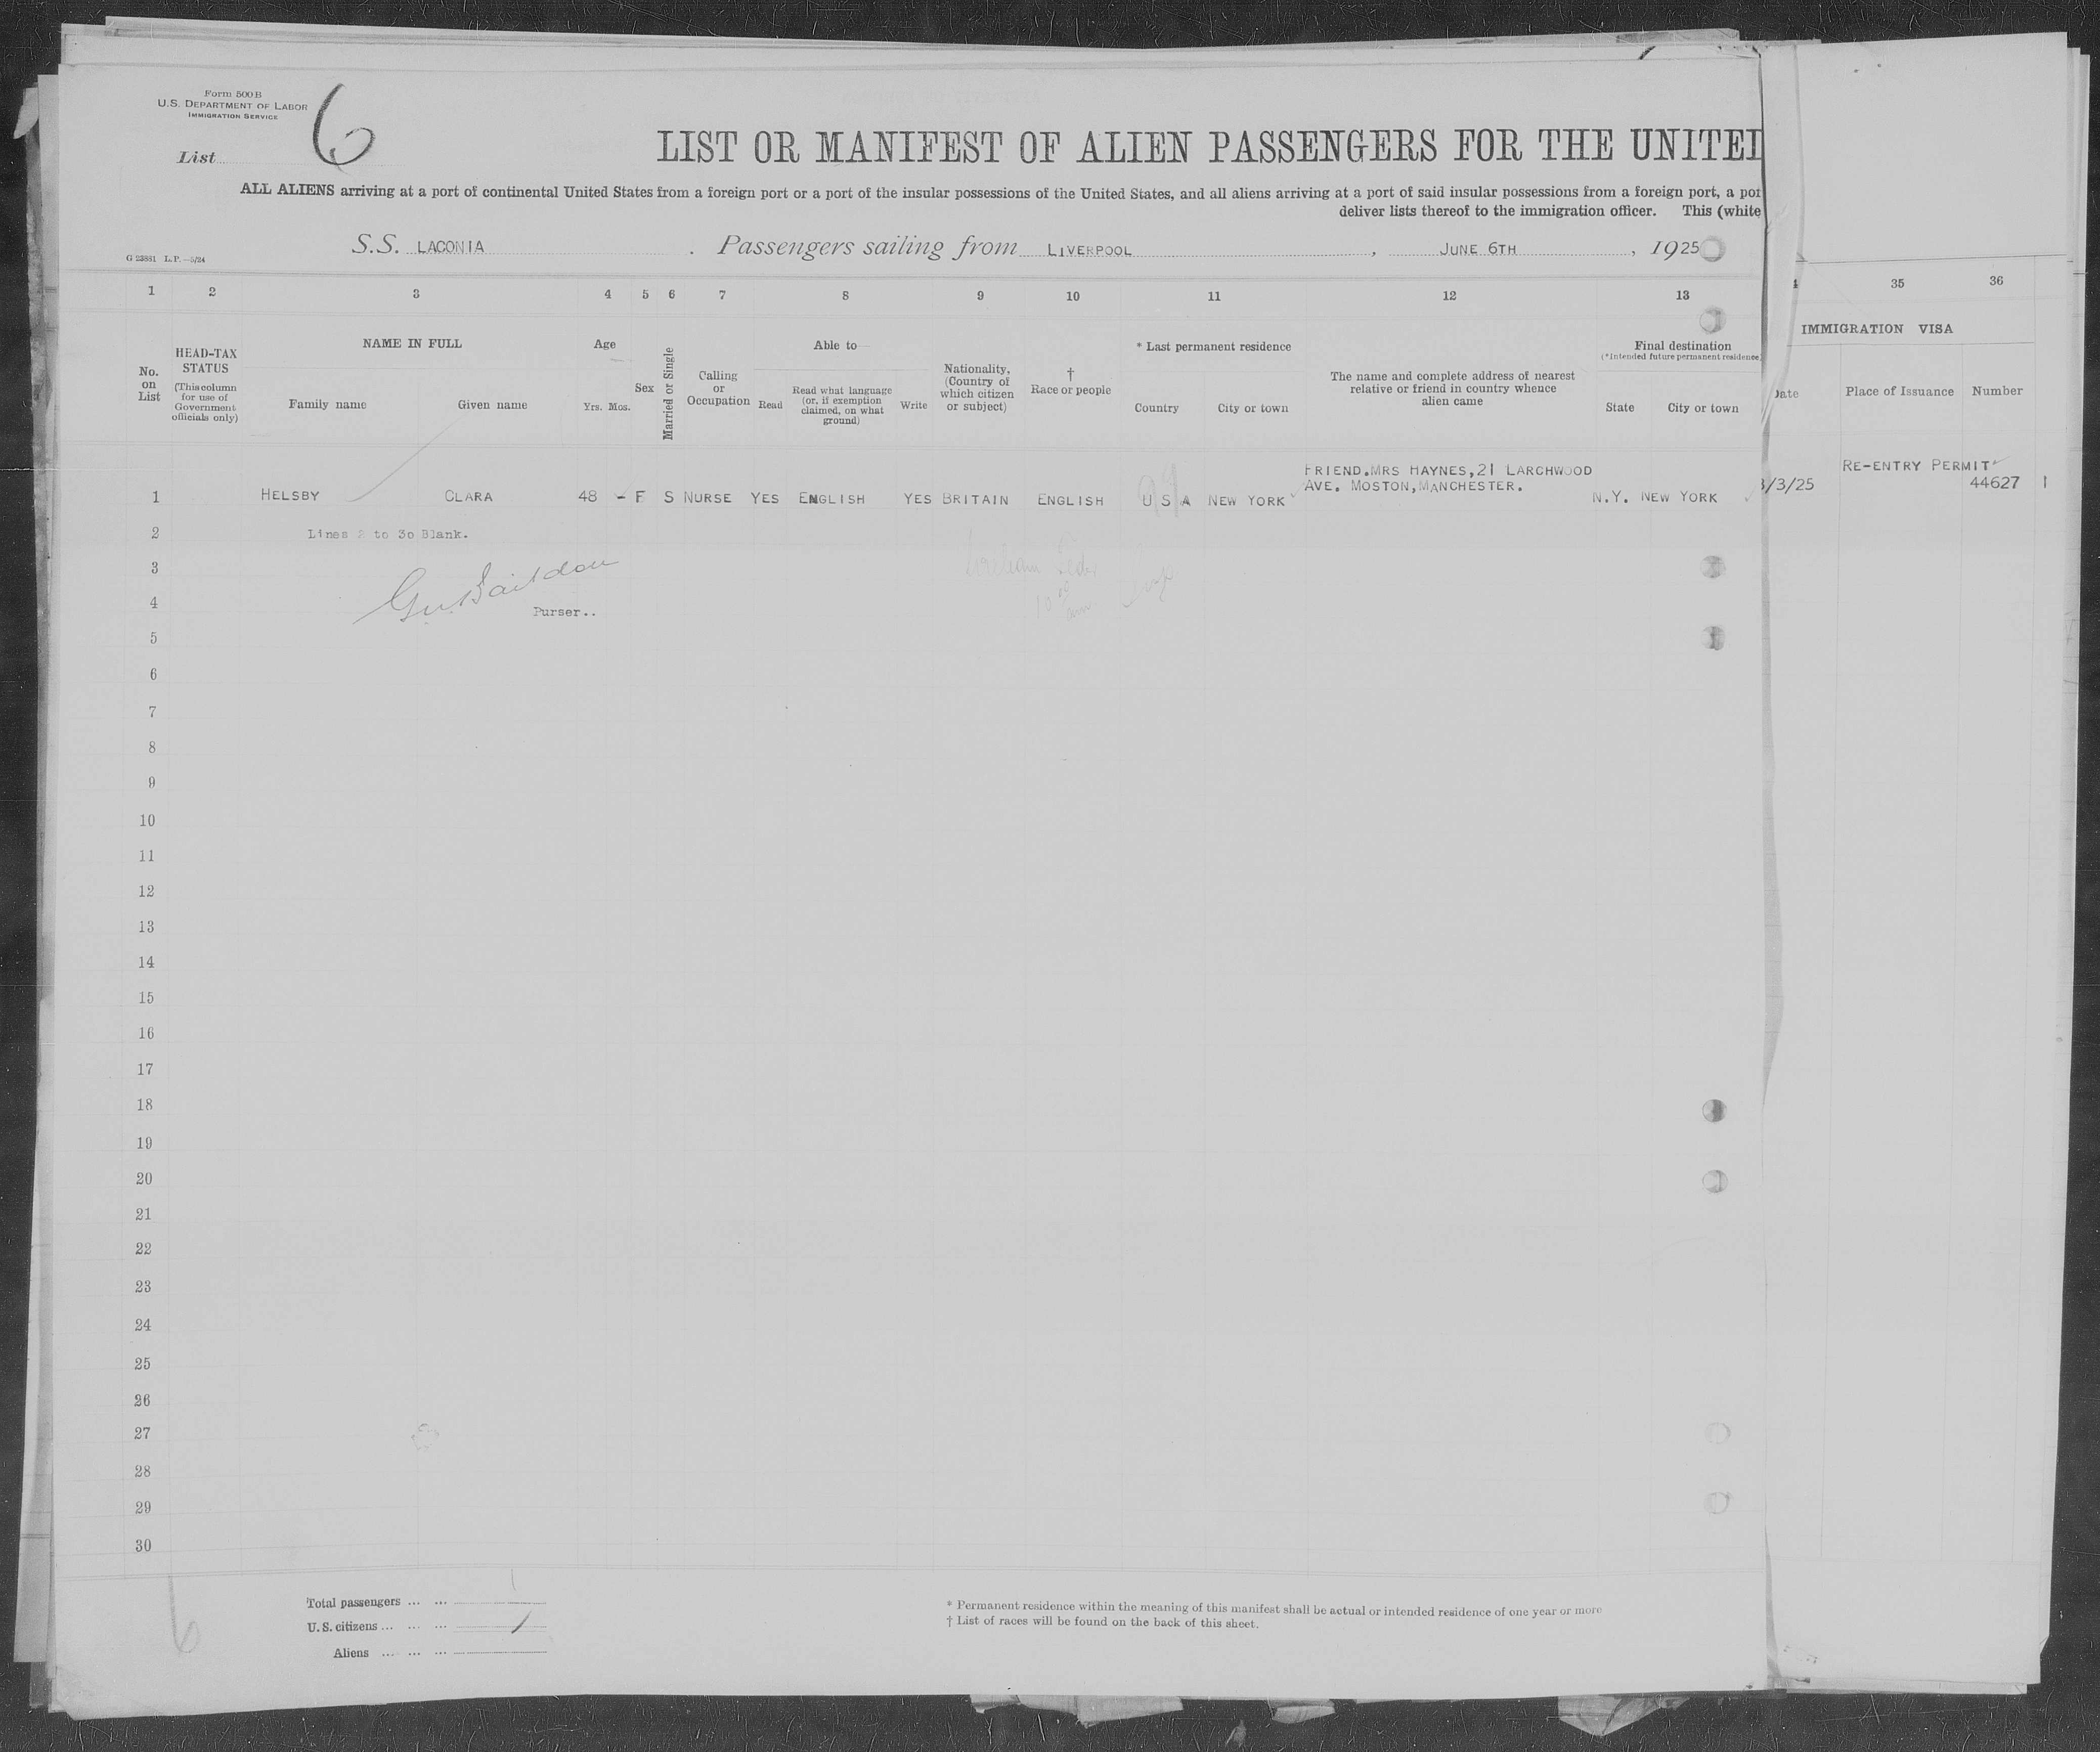 Form 500 B
U.S. DEPARTMENT OF LABOR
IMMIGRATION SERVICE
List 6
LIST OR MANIFEST OF ALIEN PASSENGERS FOR THE UNITE
ALL ALIENS arriving at a port of continental United States from a foreign port or a port of the insular possessions of the United States, and all aliens arriving at a port of said insular possessions from a foreign port, a
deliver lists thereof to the immigration officer. This (white
S.S. LACONIA . Passengers sailing from LIVERPOOL , JUNE 6TH , 1925
G 23881 L.P.—5/24
1 2 3 4 5 6 7 8 9 10 11 12 13 35 36
No. on List
HEAD-TAX STATUS
(This column for use of Government officials only)
NAME IN FULL
Family name Given name
Age
Yrs. Mos.
Sex
Married or Single
Calling or Occupation
Able to
Read
Read what language (or, if exemption claimed, on what ground)
Write
Nationality, (Country of which citizen or subject)
† Race or people
* Last permanent residence
Country City or town
The name and complete address of nearest relative or friend in country whence alien came
Final destination
(*Intended future permanent residence)
State City or town
IMMIGRATION VISA
Date Place of Issuance Number
FRIEND.MRS HAYNES,21 LARCHWOOD
AVE. MOSTON,MANCHESTER.
1 HELSBY CLARA 48 - F S NURSE YES ENGLISH YES BRITAIN ENGLISH U S A NEW YORK N.Y. NEW YORK
/3/25 RE-ENTRY PERMIT 44627
2 Lines 2 to 30 Blank.
3
4 Purser..
5
6
7
8
9
10
11
12
13
14
15
16
17
18
19
20
21
22
23
24
25
26
27
28
29
30
Total passengers ... ... 1
U.S. citizens ... ... ... /
Aliens ... ... ...
6
* Permanent residence within the meaning of this manifest shall be actual or intended residence of one year or more
† List of races will be found on the back of this sheet.